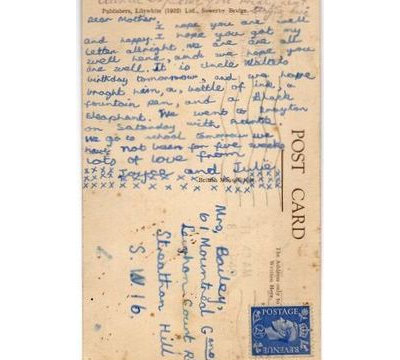 Publishers, Lilywhite (1932) Ltd., Sowerby Bridge.
Dear Mother.
I hope you are well
and happy. I hope you got my
letter allright. We are all
well here, and we hope you
are well. It is uncle Walters
birthday tomorrow, and we have
braght him, a, bottle of ink, a
fountain pen, and a Black
Eleaphant. We went to
on Satonday with Auntie.
We go to school tomorrow we
have not been for five weeks
lots of love from
Joyce and Julie
x x x x x x x x x x x x x x x x x x
British
POST CARD
The Address only to be
Written Here.
Mrs, Bailey,
61 Mounted Gans
Leigham Court R
Streathan Hill
S. W. 16.
POSTAGE